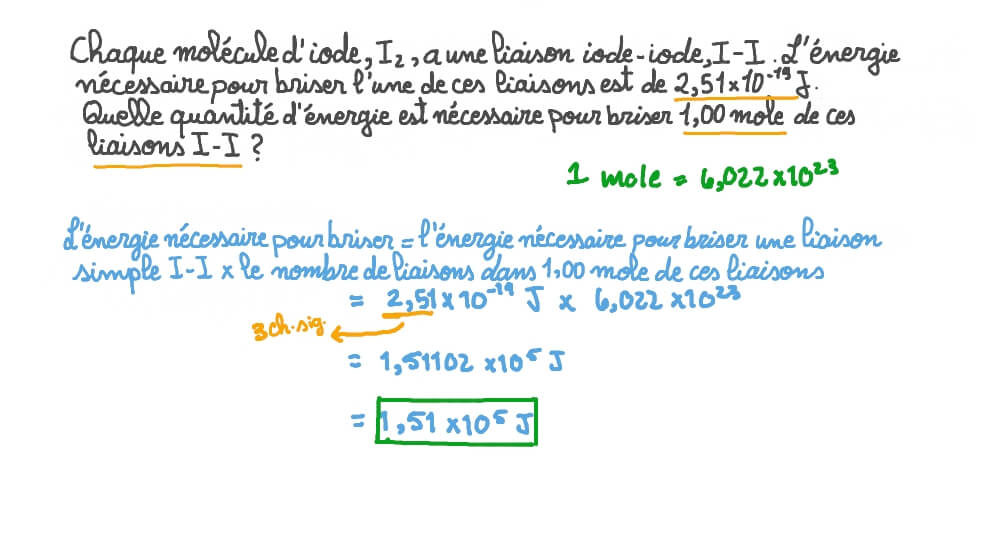 Chaque molécule d'iode, I₂, a une liaison iode-iode, I-I. L'énergie
nécessaire pour briser l'une de ces liaisons est de 2,51×10⁻¹⁹ J.
Quelle quantité d'énergie est nécessaire pour briser 1,00 mole de ces
liaisons I-I ?
1 mole = 6,022×10²³
L'énergie nécessaire pour briser = l'énergie nécessaire pour briser une liaison
simple I-I × le nombre de liaisons dans 1,00 mole de ces liaisons
= 2,51×10⁻¹⁹ J × 6,022×10²³
3 ch. sig.
= 1,51102 ×10⁵ J
= 1,51 ×10⁵ J